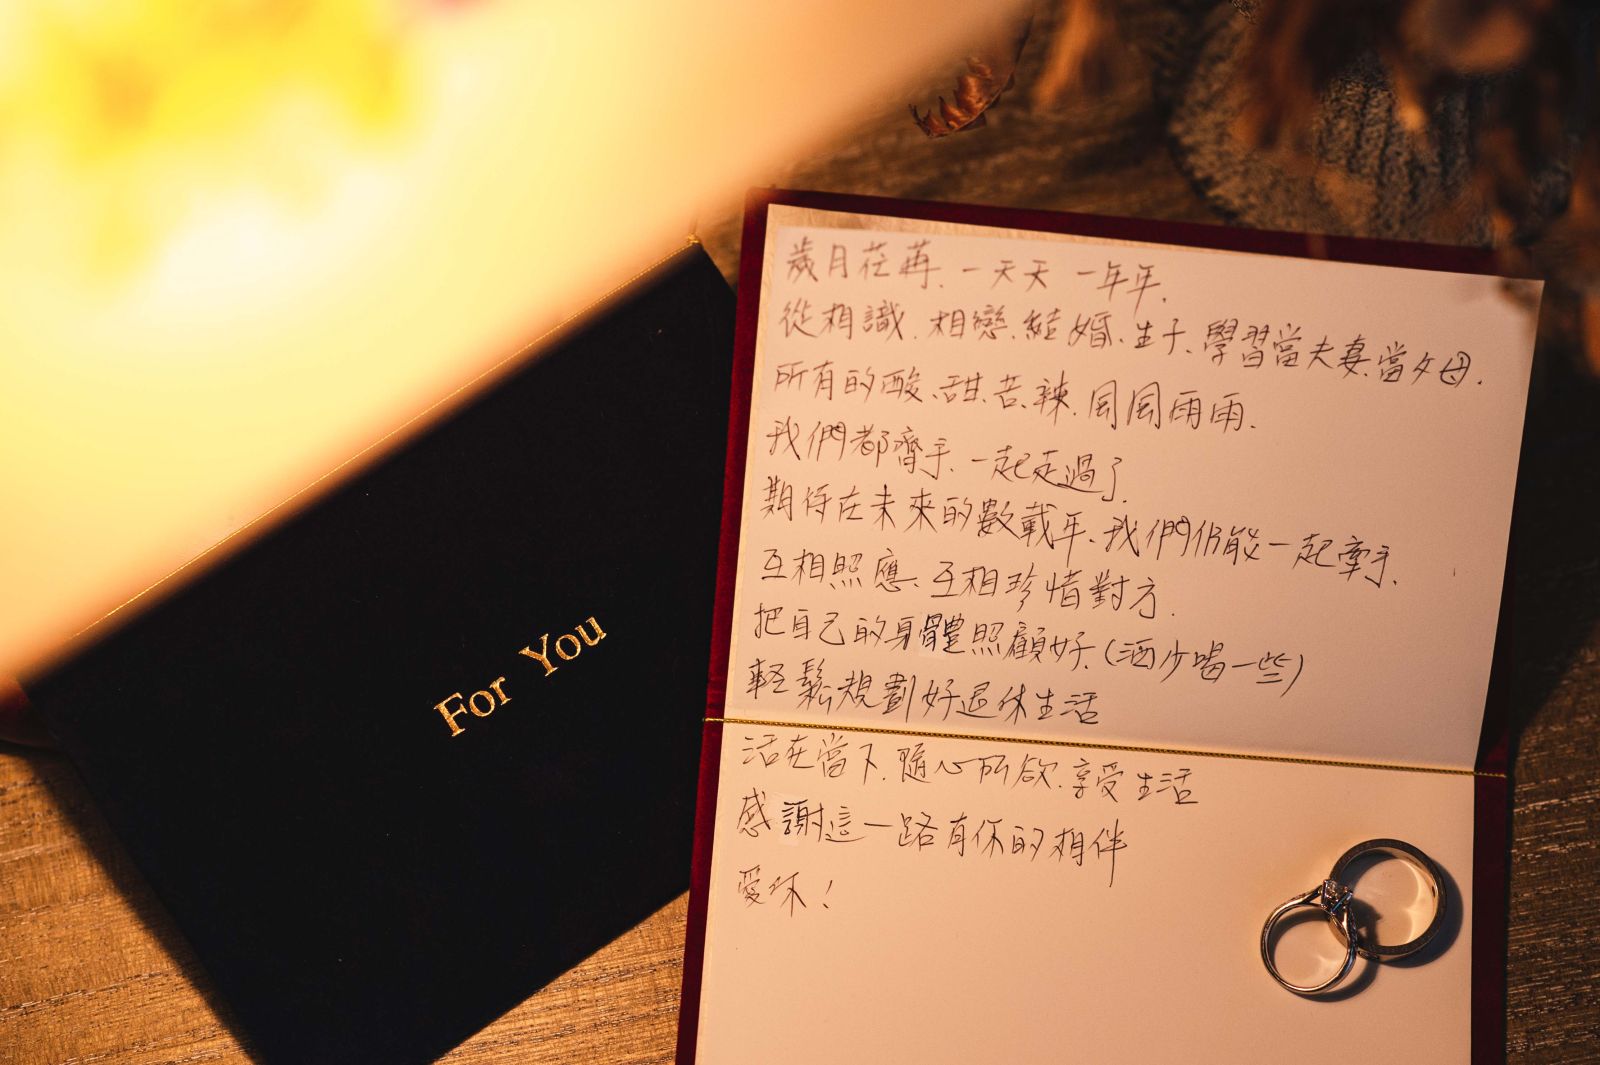 For You
歲月荏苒、一天天 一年年.
從相識.相戀、結婚、生子、學習當夫妻、當父母.
所有的酸、甜、苦、辣.風風雨雨.
我們都齊手、一起走過了.
期待在未來的數載年、我們仍能一起牽手.
互相照應、互相珍惜對方.
把自己的身體照顧好、(酒少喝一些)
輕鬆規劃好退休生活
活在當下.隨心所欲.享受生活
感謝這一路有你的相伴
愛你!